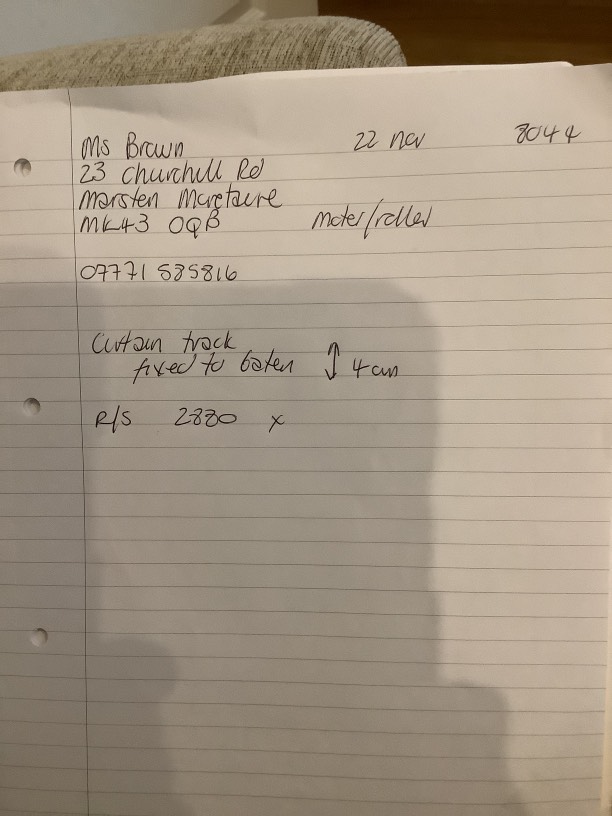 Ms Brown 22 nov 8044
23 Churchill Rd
Marsten Moretaire
MK43 0QB Moter/roller
07771 585816
Curtain track
fixed to baten ↕ 4cm
R/S 2880 x